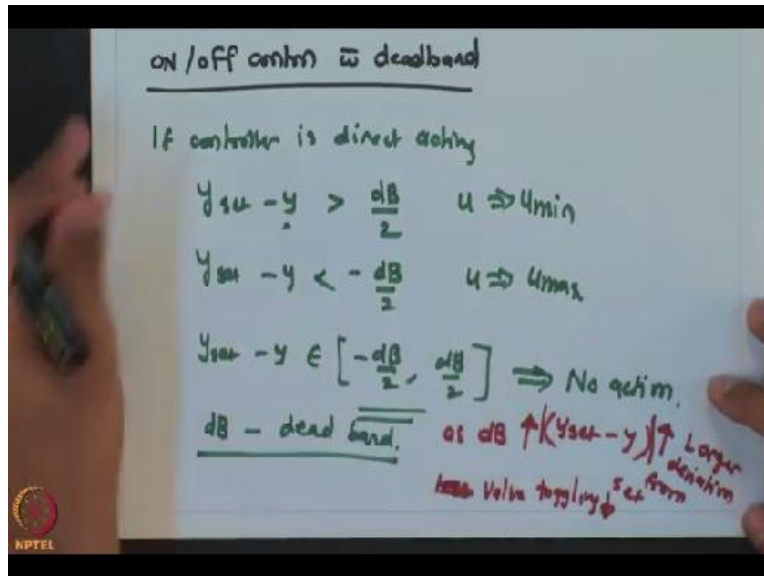 ON/OFF control w̄ deadband
If controller is direct acting
yset - y > dB/2 u ⇒ umin
yset - y < - dB/2 u ⇒ umax
yset - y ∈ [-dB/2, dB/2] ⇒ No action.
dB - dead band.
as dB ↑ |(yset - y)| ↑ Larger deviation from set
Valve toggling ↓
NPTEL